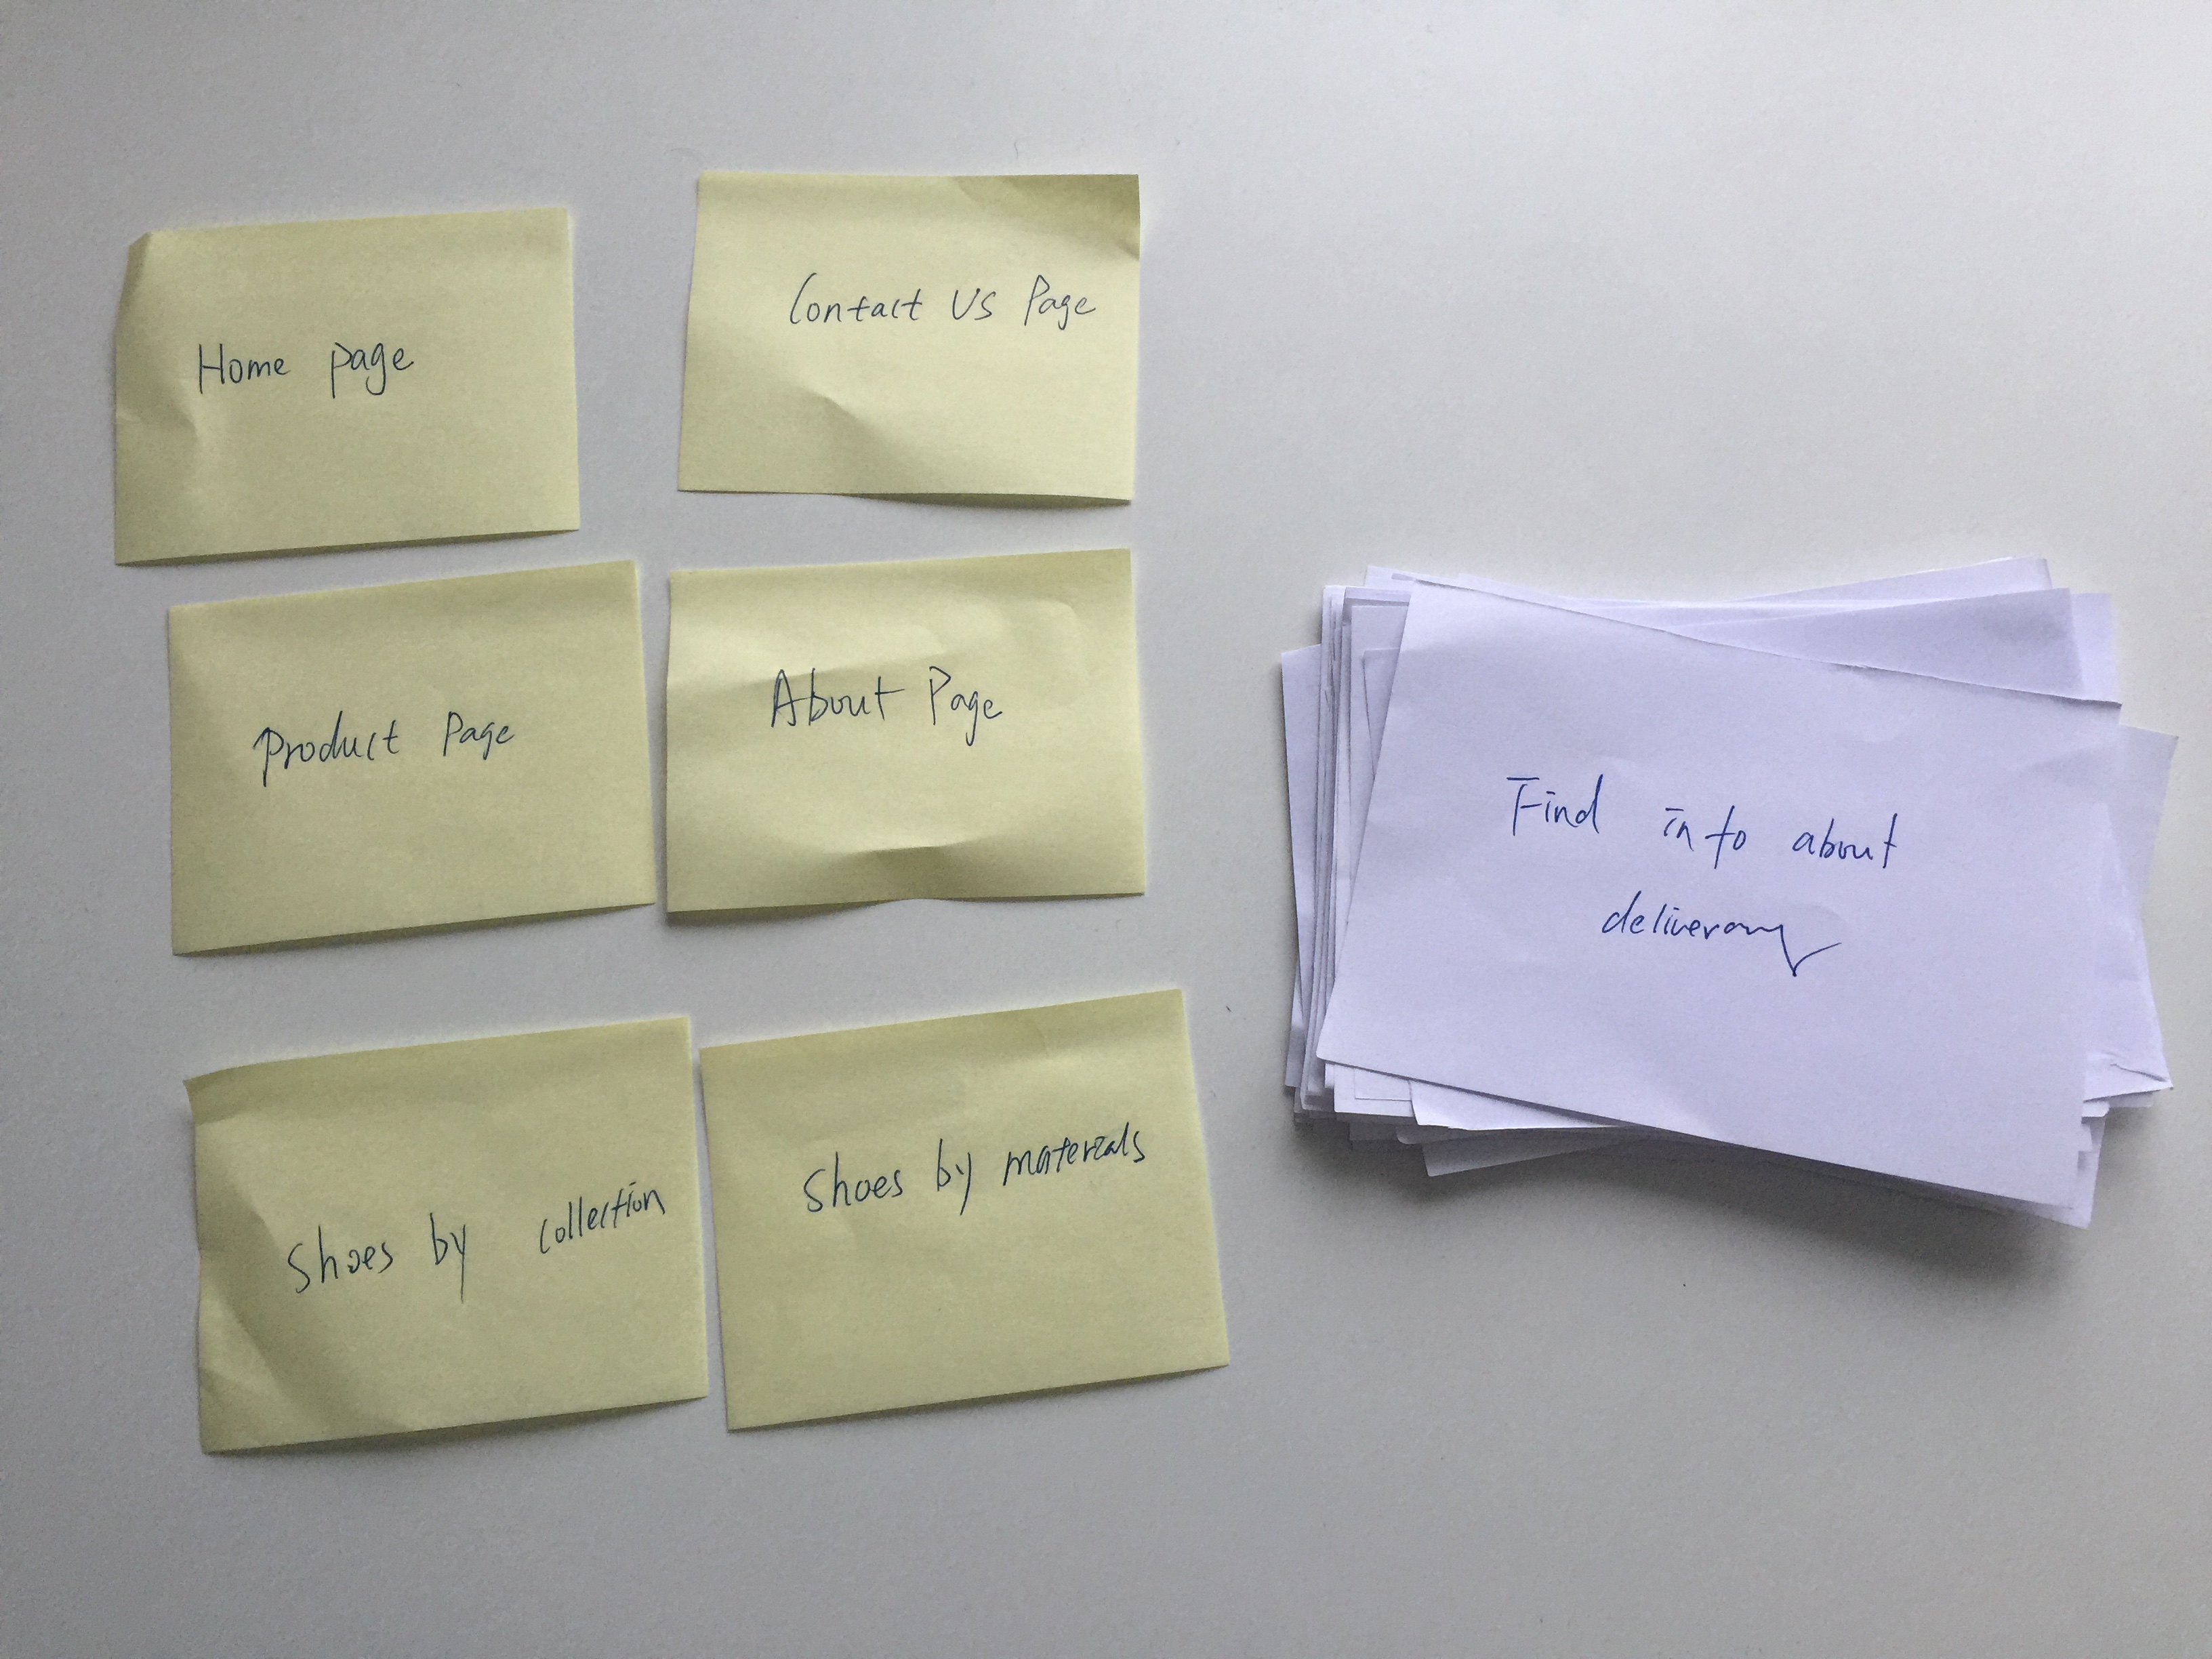 Home page
Contact US Page
Product Page
About Page
Shoes by collection
Shoes by materials
Find info about